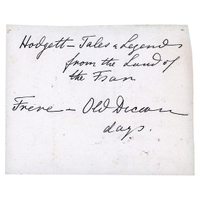 Hodgett – Tales & Legends
from the Land of
the Tsar
Frere – Old Deccan
days.